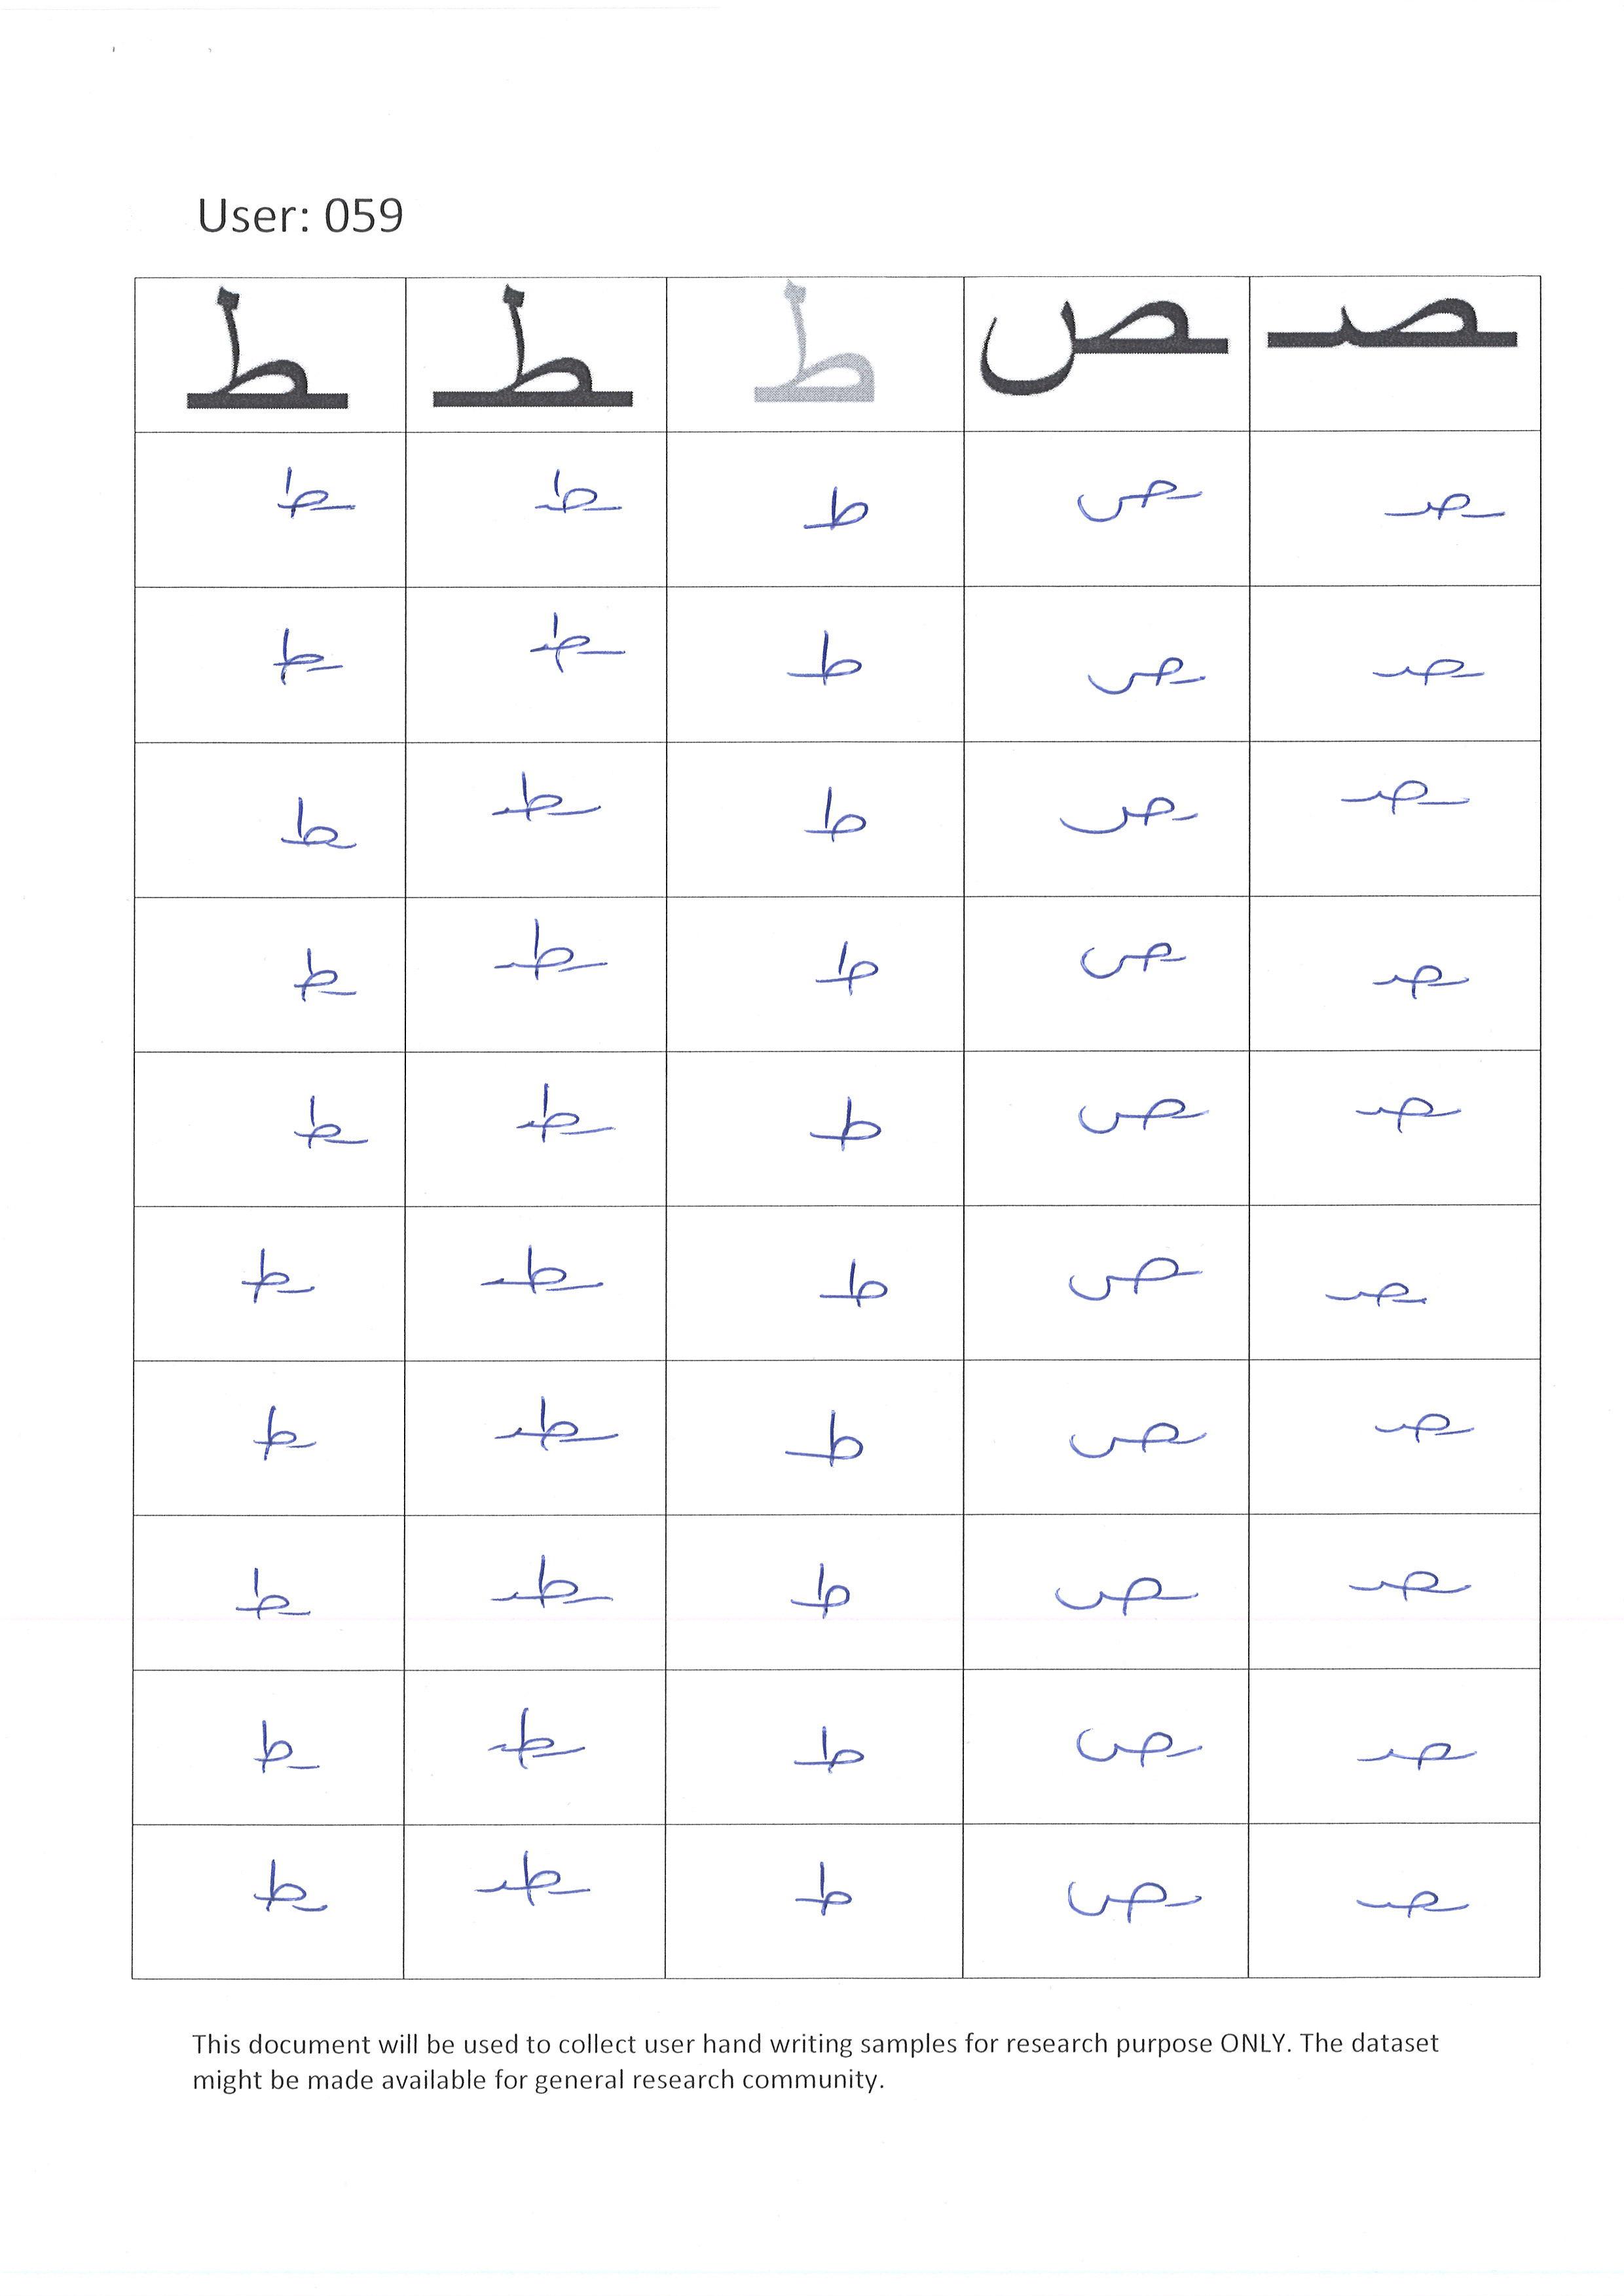 User: 059
ـط ـطـ طـ ـص ـصـ
ـط ـطـ طـ ـص ـصـ
ـط ـطـ طـ ـص ـصـ
ـط ـطـ طـ ـص ـصـ
ـط ـطـ طـ ـص ـصـ
ـط ـطـ طـ ـص ـصـ
ـط ـطـ طـ ـص ـصـ
ـط ـطـ طـ ـص ـصـ
ـط ـطـ طـ ـص ـصـ
ـط ـطـ طـ ـص ـصـ
ـط ـطـ طـ ـص ـصـ
This document will be used to collect user hand writing samples for research purpose ONLY. The dataset
might be made available for general research community.